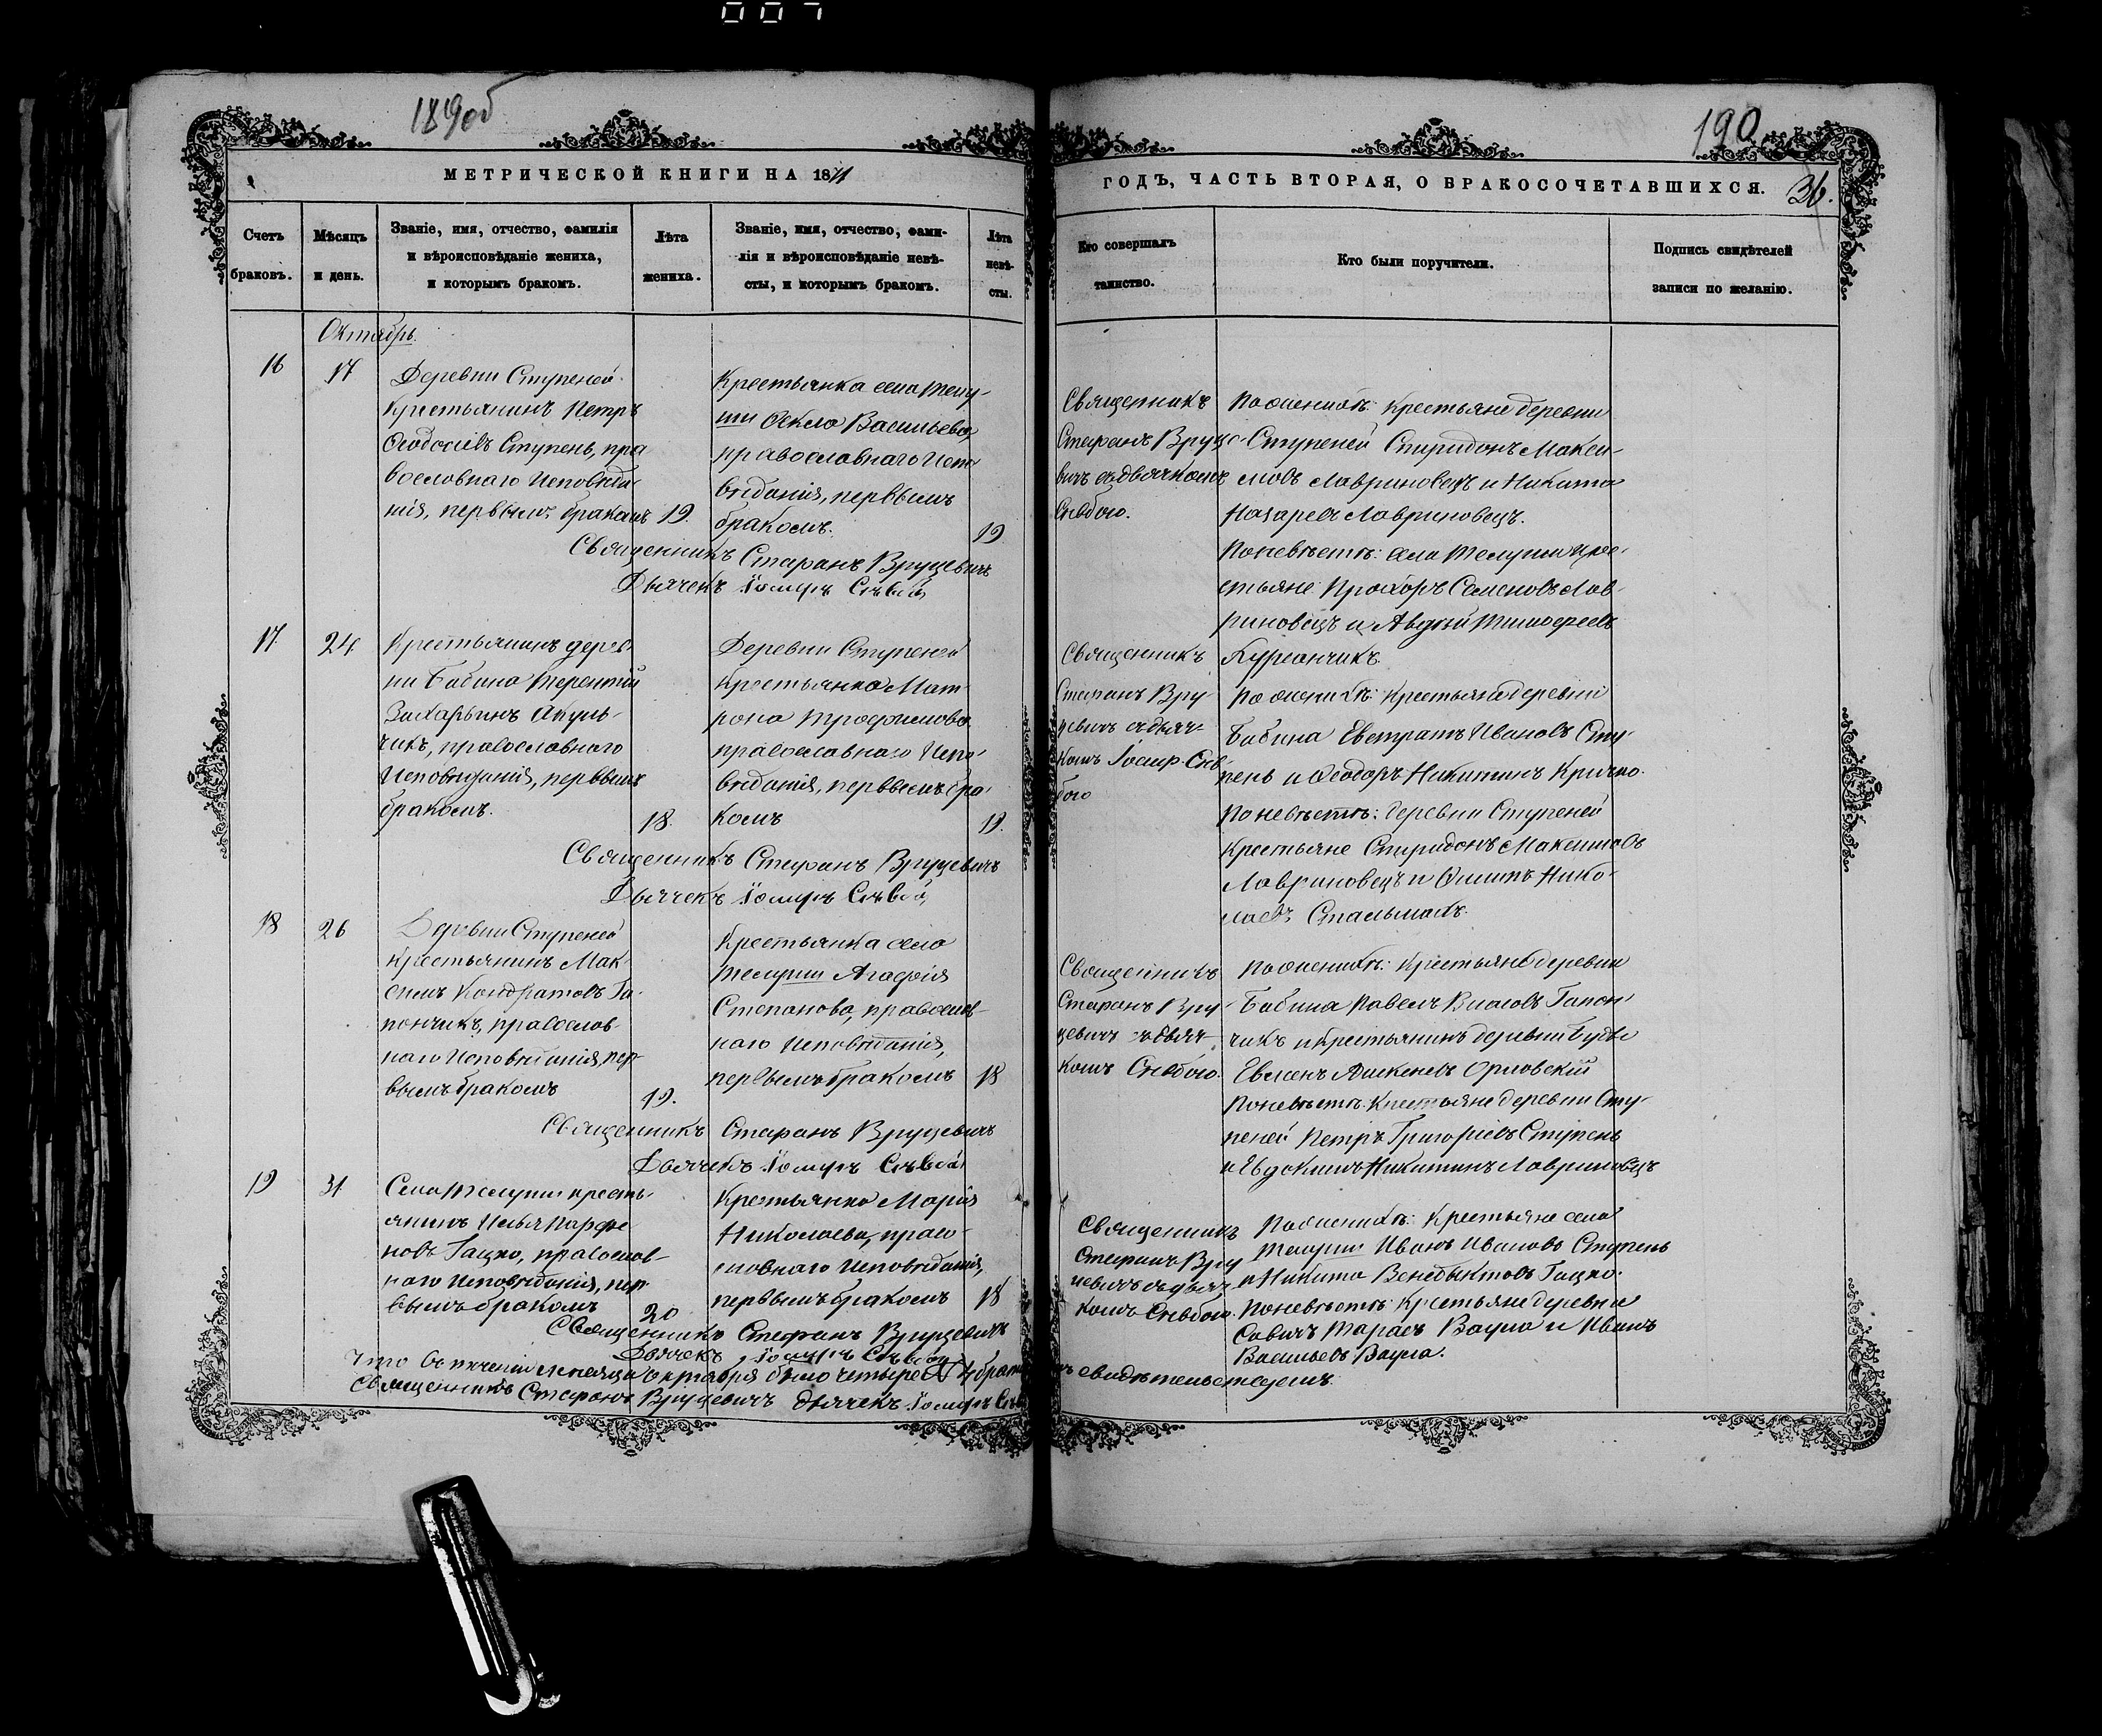 007
189об
190
МЕТРИЧЕСКОЙ КНИГИ НА 1871
ГОДЪ, ЧАСТЬ ВТОРАЯ, О БРАКОСОЧЕТАВШИХСЯ.
36.
Счетъ браковъ.
Мѣсяцъ и день.
Званіе, имя, отчество, фамилія
и вѣроисповѣданіе жениха,
и которымъ бракомъ.
Лѣта жениха.
Званіе, имя, отчество, фами-
лія и вѣроисповѣданіе невѣ-
сты, и которымъ бракомъ.
Лѣта невѣ-
сты.
Кто совершалъ
таинство.
Кто были поручители.
Подпись свидѣтелей
записи по желанію.
Октябрь.
16
17
Деревни Ступеней
Крестьянинъ Петръ
Ѳеодосіевъ Ступень, пра
вославнаго Исповѣда-
нія, первымъ бракомъ
19.
Крестьянка села Телу-
ши Ѳекла Васильева,
православнаго Испо
вѣданія, первымъ
бракомъ.
19
Священникъ
Стефанъ Вруце-
вичъ съ дьячкомъ
Снѣбою.
По женихѣ: Крестьяне деревни
Ступеней Спиридонъ Макси-
мовъ Лавриновецъ и Никита
Назаревъ Лавриновецъ.
По невѣстѣ: села Телуши кре-
стьяне Прохоръ Семеновъ Лав-
риновецъ и Авдѣй Тимофеевъ
Курганчикъ.
Священникъ Стефанъ Вруцевичъ
Дьячекъ
17.
24
Крестьянинъ дерев
ни Бабина Терентій
Захарьинъ Акуль-
чикъ, православнаго
Исповѣданія, первымъ
бракомъ.
18.
Деревни Ступеней
Крестьянка Мат-
рона Трофимова
православнаго Испо-
вѣданія, первымъ бра-
комъ
19.
Священникъ
Стефанъ Вру-
цевичъ съ дьяч-
комъ Іосиф. Снѣ-
бою
По женихѣ: Крестьяне деревни
Бабина Евстратъ Ивановъ Сту-
пень и Ѳеодоръ Никитинъ Кричко.
По невѣстѣ: деревни Ступеней
Крестьяне Спиридонъ Максимовъ
Лавриновецъ и Нико-
лаевъ Стальмахъ.
Священникъ Стефанъ Вруцевичъ
Дьячекъ
18
26
Деревни Ступеней
Крестьянинъ Мак-
симъ Кондратовъ Га-
пончикъ, православ-
наго Исповѣданія, пер-
вымъ бракомъ
19.
Крестьянка села
Телуши Агафія
Степанова, православ-
наго Исповѣданія,
первымъ бракомъ
18
Священникъ
Стефанъ Вру-
цевичъ съ дьяч-
комъ Снѣбою.
По женихѣ: Крестьяне деревни
Бабина Павелъ Власовъ Гапон-
чикъ и крестьянинъ деревни
Орловскій
По невѣстѣ: Крестьяне деревни Сту-
пеней Петръ Григорьевъ Ступень
и Евдокимъ Никитинъ Лавриновецъ
Священникъ Стефанъ Вруцевичъ
Дьячекъ
19
31
Села Телуши кресть-
янинъ Илья Парфе
новъ Гацко, православ-
наго Исповѣданія, пер-
вымъ бракомъ
20
Крестьянка Марія
Николаева, право-
славнаго Исповѣданія,
первымъ бракомъ
18
Священникъ
Стефанъ Вру
цевичъ съ дьяч-
комъ Снѣбою.
По женихѣ: Крестьяне села
Телуши Иванъ Ивановъ Ступень
и Никита Венедыктовъ Гацко.
По невѣстѣ: Крестьяне деревни
Савичъ Тарасъ Ваула и Иванъ
Васильевъ Ваула.
Священникъ Стефанъ Вруцевичъ
Дьячекъ
Что въ теченіи мѣсяца октября было четыре 4 брака свидѣтельствуемъ.
Священникъ Стефанъ Вруцевичъ дьячекъ